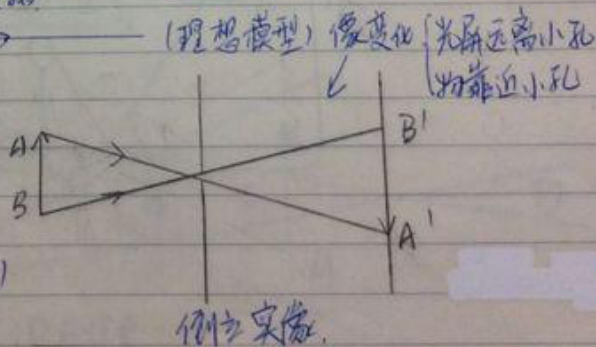 (理想模型) 像变化 { 光屏远离小孔
物靠近小孔
A
B'
B
A'
倒立实像.